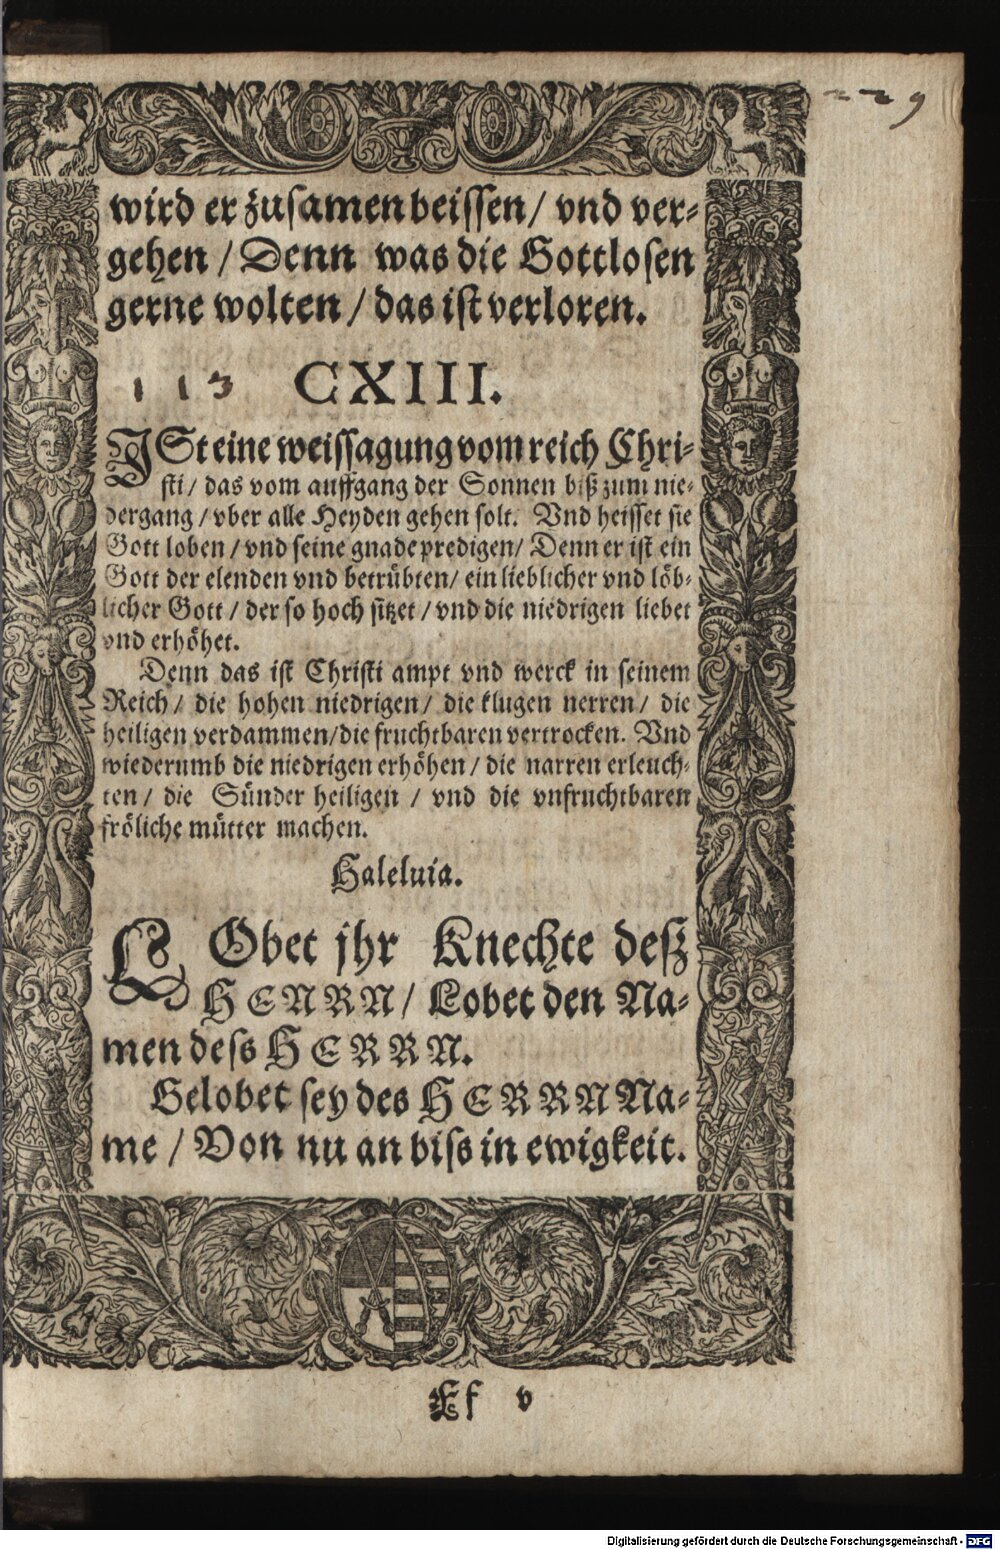 229
wird er zusamen beissen / vnd ver-
gehen / Denn was die Gottlosen
gerne wolten / das ist verloren.
113 CXIII.
JSt eine weissagung vom reich Chri-
sti / das vom auffgang der Sonnen biß zum nie-
dergang / vber alle Heyden gehen solt. Vnd heisset sie
Gott loben / vnd seine gnade predigen / Denn er ist ein
Gott der elenden vnd betrübten / ein lieblicher vnd löb-
licher Gott / der so hoch sitzet / vnd die niedrigen liebet
vnd erhöhet.
Denn das ist Christi ampt vnd werck in seinem
Reich / die hohen niedrigen / die klugen nerren / die
heiligen verdammen / die fruchtbaren vertrocken. Vnd
wiederumb die niedrigen erhöhen / die narren erleuch-
ten / die Sünder heiligen / vnd die vnfruchtbaren
fröliche mütter machen.
Haleluia.
LObet jhr Knechte deß
HENRN / Lobet den Na-
men dess HERRN.
Gelobet sey des HERRN Na-
me / Von nu an biss in ewigkeit.
Ff v
Digitalisierung gefördert durch die Deutsche Forschungsgemeinschaft - DFG